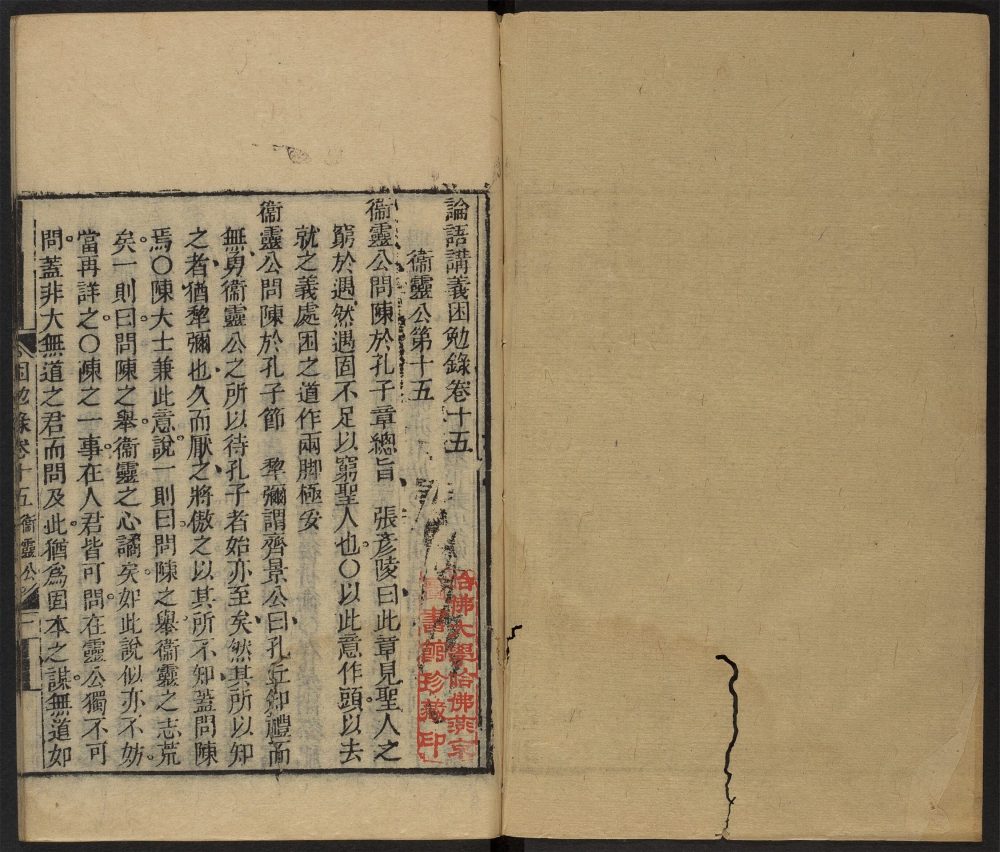 論語講義困勉錄卷十五
衞靈公第十五
衞靈公問陳於孔子章總旨 張彥陵曰此章見聖人之
窮於遇然遇固不足以窮聖人也〇以此意作頭以去
就之義處困之道作兩脚極安
衞靈公問陳於孔子節 犂彌謂齊景公曰孔丘知禮而
無勇衞靈公之所以待孔子者始亦至矣然其所以知
之者猶犂彌也久而厭之將傲之以其所不知蓋問陳
焉〇陳大士兼此意說一則曰問陳之舉衞靈之志荒
矣一則曰問陳之舉衞靈之心譎矣如此說似亦不妨
當再詳之〇陳之一事在人君皆可問在靈公獨不可
問蓋非大無道之君而問及此猶爲固本之謀無道如
困勉錄卷十五 衞靈公 一
哈佛大學哈佛燕京
圖書館珍藏印